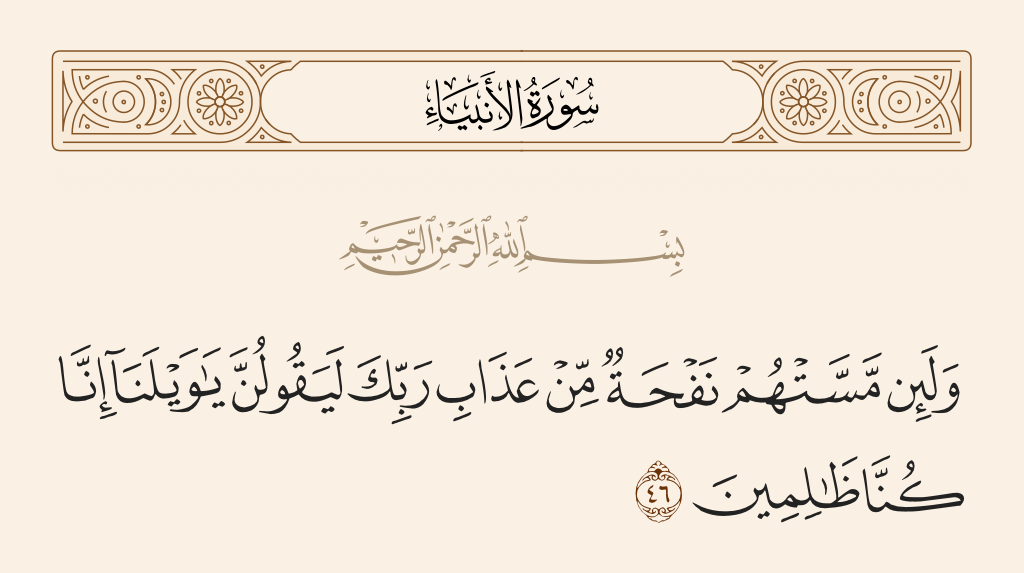 سُورَةُ الأَنبِيَاءِ
بِسْمِ ٱللَّهِ ٱلرَّحْمَٰنِ ٱلرَّحِيمِ
وَلَئِن مَّسَّتْهُمْ نَفْحَةٌ مِّنْ عَذَابِ رَبِّكَ لَيَقُولُنَّ يَٰوَيْلَنَآ إِنَّا
كُنَّا ظَٰلِمِينَ ٤٦